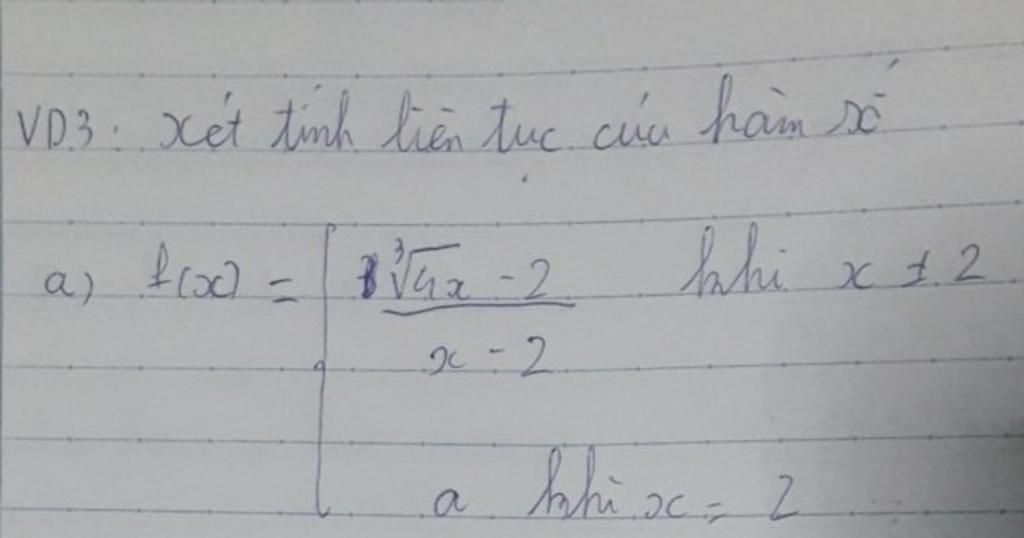 VD3: xét tính liên tục của hàm số
a) f(x) = { (∛4x - 2) / (x - 2) khi x ≠ 2
a khi x = 2